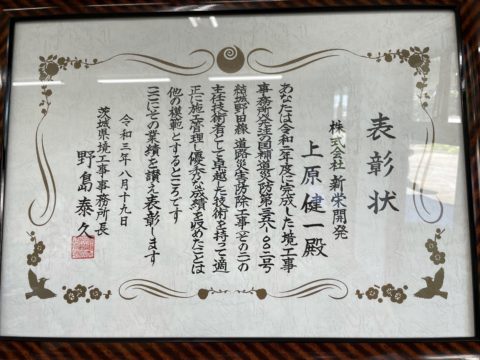 表彰状
株式会社 新栄開発
上原健一殿
あなたは令和二年度に完成した境工事
事務所発注国補道災防第三五-八-〇〇二号
結城野田線 道路災害防除工事(その一)の
主任技術者として卓越した技術を持って適
正に施工管理し優秀な成績を収めたことは
他の模範とするところです
ここにその業績を讃え表彰します
令和三年八月十九日
茨城県境工事事務所長
野島泰久